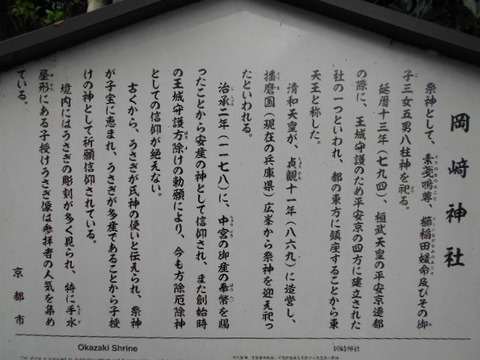 岡﨑神社
祭神として、素戔嗚尊、櫛稲田媛命及びその御
子三女五男八柱神を祀る。
延暦十三年(七九四)、桓武天皇の平安京遷都
の際に、王城守護のため平安京の四方に建立された
社の一つといわれ、都の東方に鎮座することから東
天王と称した。
清和天皇が、貞観十一年(八六九)に造営し、
播磨国(現在の兵庫県)広峯から祭神を迎え祀っ
たといわれる。
治承二年(一一七八)に、中宮の御産の奉幣を賜
ったことから安産の神として信仰され、また創始時
の王城守護方除けの勅願により、今も方除厄除神
としての信仰が絶えない。
古くから、うさぎが氏神の使いと伝えられ、祭神
が子宝に恵まれ、うさぎが多産であることから子授
けの神として祈願信仰されている。
境内にはうさぎの彫刻が多く見られ、特に手水
屋形にある子授けうさぎ像は参拝者の人気を集め
ている。
京都市
Okazaki Shrine
岡﨑神社